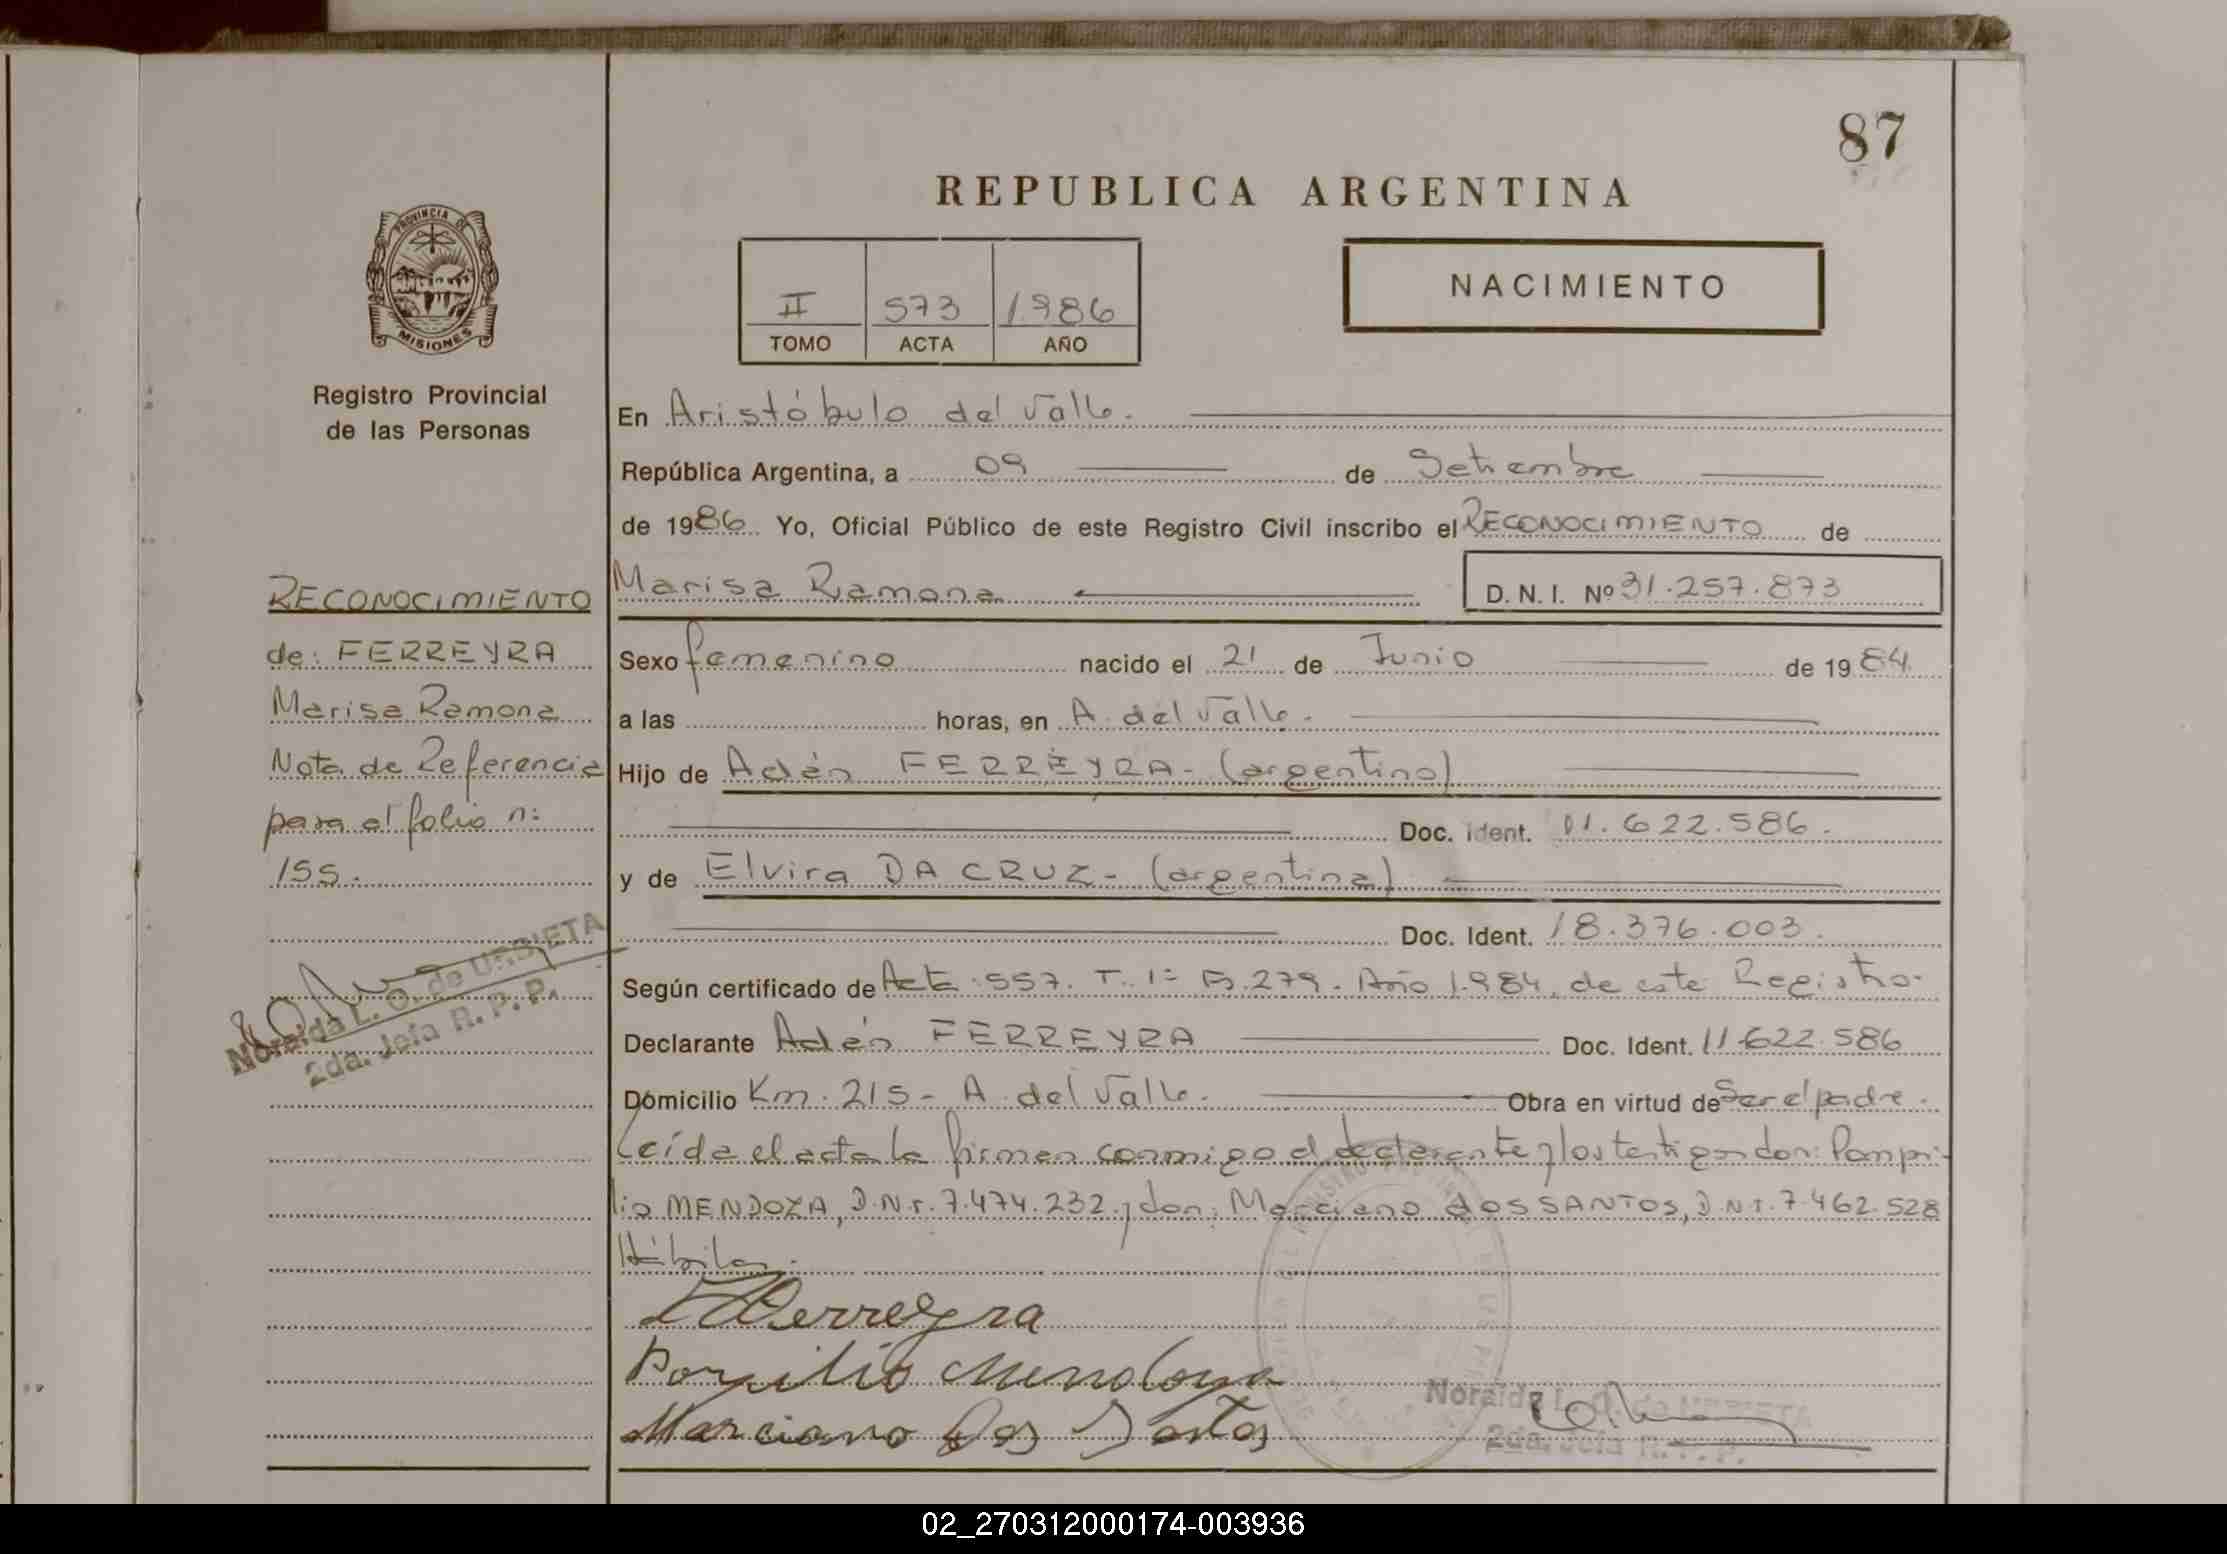 87
REPUBLICA ARGENTINA
PROVINCIA DE
MISIONES
NACIMIENTO
II 573 1.986
TOMO ACTA AÑO
Registro Provincial
de las Personas
En Aristóbulo del Valle.
República Argentina, a 09 de Setiembre
de 1986 Yo, Oficial Público de este Registro Civil inscribo el RECONOCIMIENTO de
Marisa Ramona D. N. I. Nº 31.257.873
Sexo femenino nacido el 21 de Junio de 1984
a las horas, en A. del Valle.
Hijo de Adén FERREYRA- (argentino)
Doc. Ident. 11.622.586.
y de Elvira DA CRUZ- (argentina)
Doc. Ident. 18.376.003.
Según certificado de Acta 557. T. 1º Fº 279. Año 1.984, de este Registro.
Declarante Adén FERREYRA Doc. Ident. 11.622.586
Domicilio Km. 215- A. del Valle. Obra en virtud de Ser el padre.
Leída el acta la firman conmigo el declarante y los testigos don: Pompi-
lio MENDOZA, D.N.I. 7.474.232. y don: Marciano DOS SANTOS, D.N.I. 7.462.528
Hábiles.
Ferreyra
Mendoza
Marciano Dos Santos
Noraida L. O. de URBIETA
2da. Jefa R. P. P.
RECONOCIMIENTO
de: FERREYRA
Marisa Ramona
Nota de Referencia
para el folio n:
155.
Noraida L. O. de URBIETA
2da. Jefa R. P. P.
02_270312000174-003936